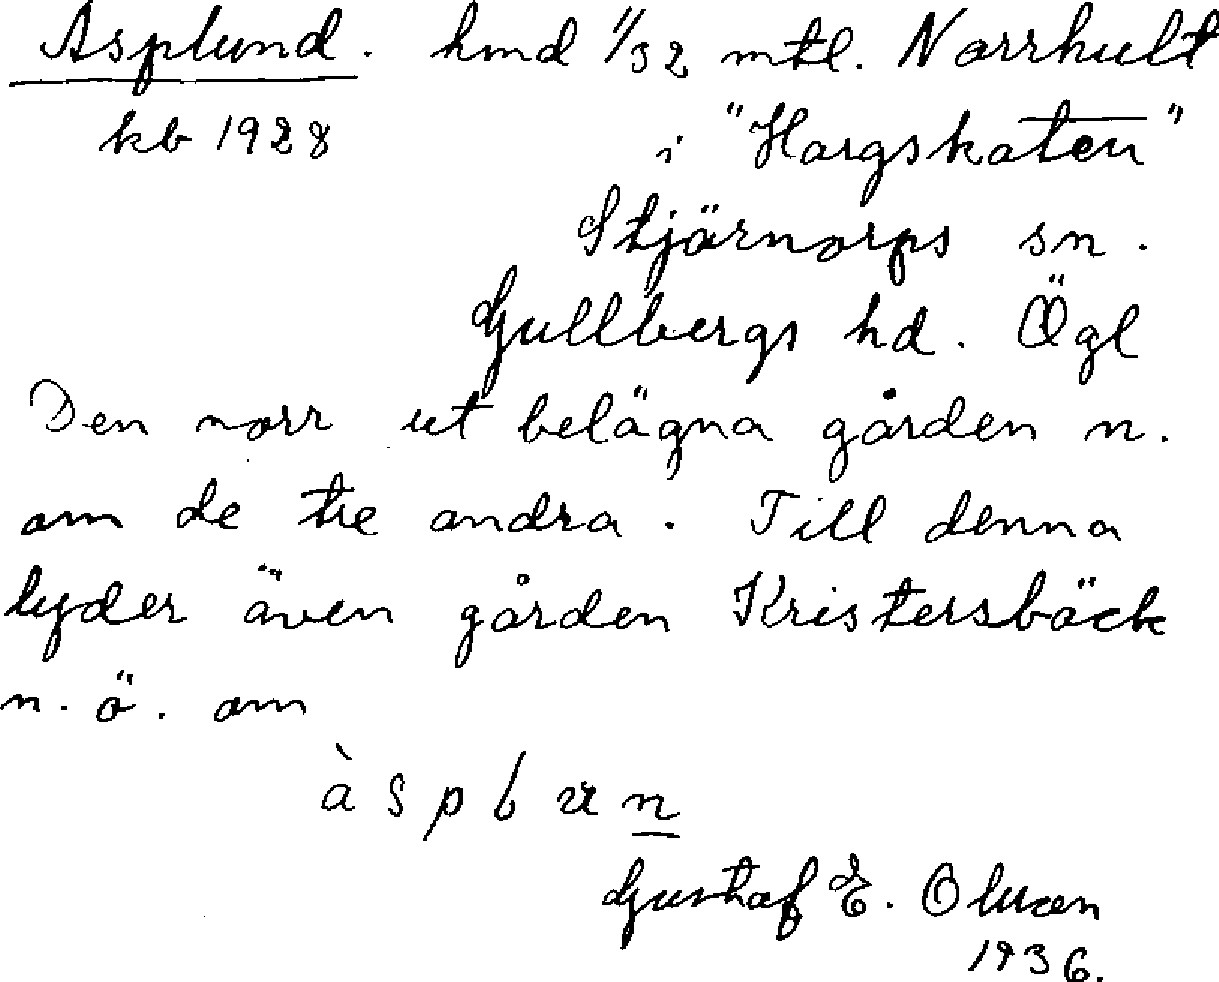 Asplund. hmd 1/32 mtl. Norrhult
kb 1928 i "Hargskaten"
Stjärnorps sn.
Gullbergs hd. Ögl
Den norr ut belägna gården n.
om de tre andra. Till denna
lyder även gården Kristersbäck
n. ö. om
Gustaf E. Olsson
1936.